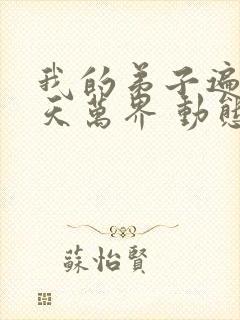 我的弟子遍
天萬界 動態
蘇怡賢